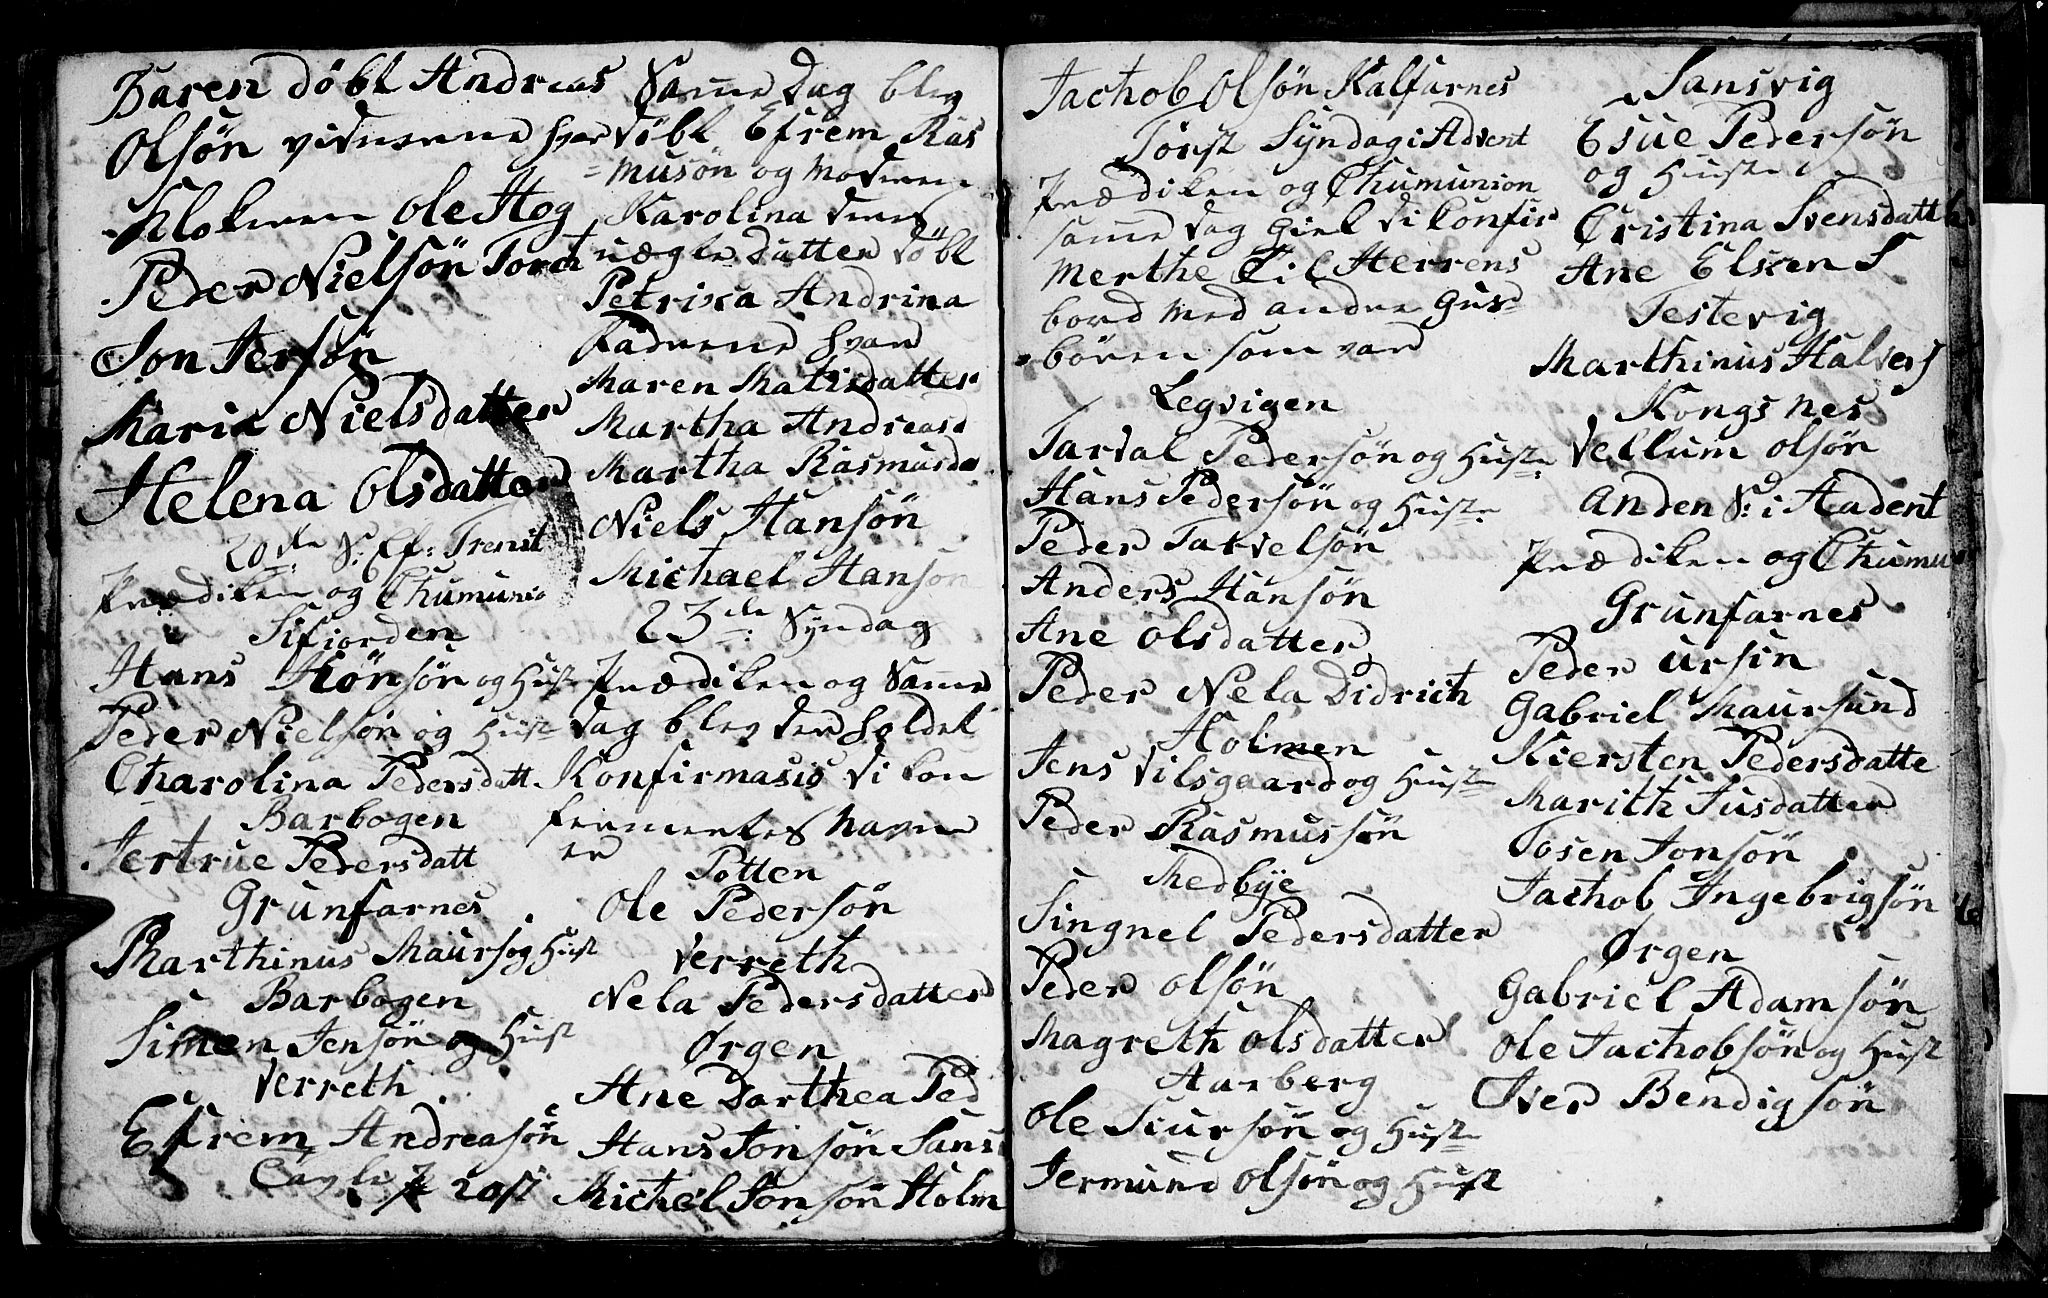 Baren döbt Andreas
Olsön vidnerne hvar
Klokeren ole Hog
Peder Nielsön Torch
Jon Jersön
Maria Nielsdatter
Helena Olsdatter
20de S: Ef: Trenit
Prædiken og Chumunio
Sifiorden
Hans Hönsön og Hust
Peder Nielsön og Hust
Charolina Pedersdatt
Barbogen
Jertrue Pedersdatt
Grunfarnes
Marthinus Maurs og Hust
Barbogen
Simen Jensön og Hust
Verreth
Efrem Andreasön
20
Samme Dag blev
döbt Efrem Ras
=musön og Moderen
Karolina deres
ægte Datter döbt
Petrixa Andrina
fadrene hvar
Maren Matisdatter
Martha Andreasd
Martha Rasmusda
Niels Hansön
Michael Hansön
23de Syndag
Prædiken og Samme
dag blev der holdet
Konfirmasis di kon
fermertes Navne
er
Totten
Ole Pedersön
Verreth
Nela Pedersdatter
Ørgen
Ane Dorthea Ped
Hans Jonsön Sans
Michel Jonsön Holm
Jachob Olsön Kalfarnes
Först Syndag i Advent
Prædiken og Chumunion
samme dag Giek di Confir
Merthe Til Herrens
bord Med andre Gus
=bören som var
Legvigen
Tarval Pedersön og Hust
Hans Pedersön og Hust
Peder Tarvelsön
Anders Hansön
Ane Olsdatter
Peder Nela Didrich
Holmen
Jens Vilsgaard og Hust
Peder Rasmussön
Medbye
Singnel Pedersdatter
Peder Olsön
Magreth Olsdatter
Aarberg
Ole Siursön og Hust
Jermund Olsön og Hust
Sansvig
Esue Pedersön
og Hust
Cristina Svensdatter
Ane Elsken S
Testevig
Marthinus Halvers
Kongsnes
Vellum Olsön
Anden S: i Aadent
Prædiken og Chumu
Grunfarnes
Peder Ursin
Gabriel Maursund
Kiersten Pedersdatte
Marith Jusdatter
Tosen Jonsön
Jachob Ingebrigsön
Ørgen
Gabriel Adamsön
Ole Jachobsön og Hust
Iver Bendigsön